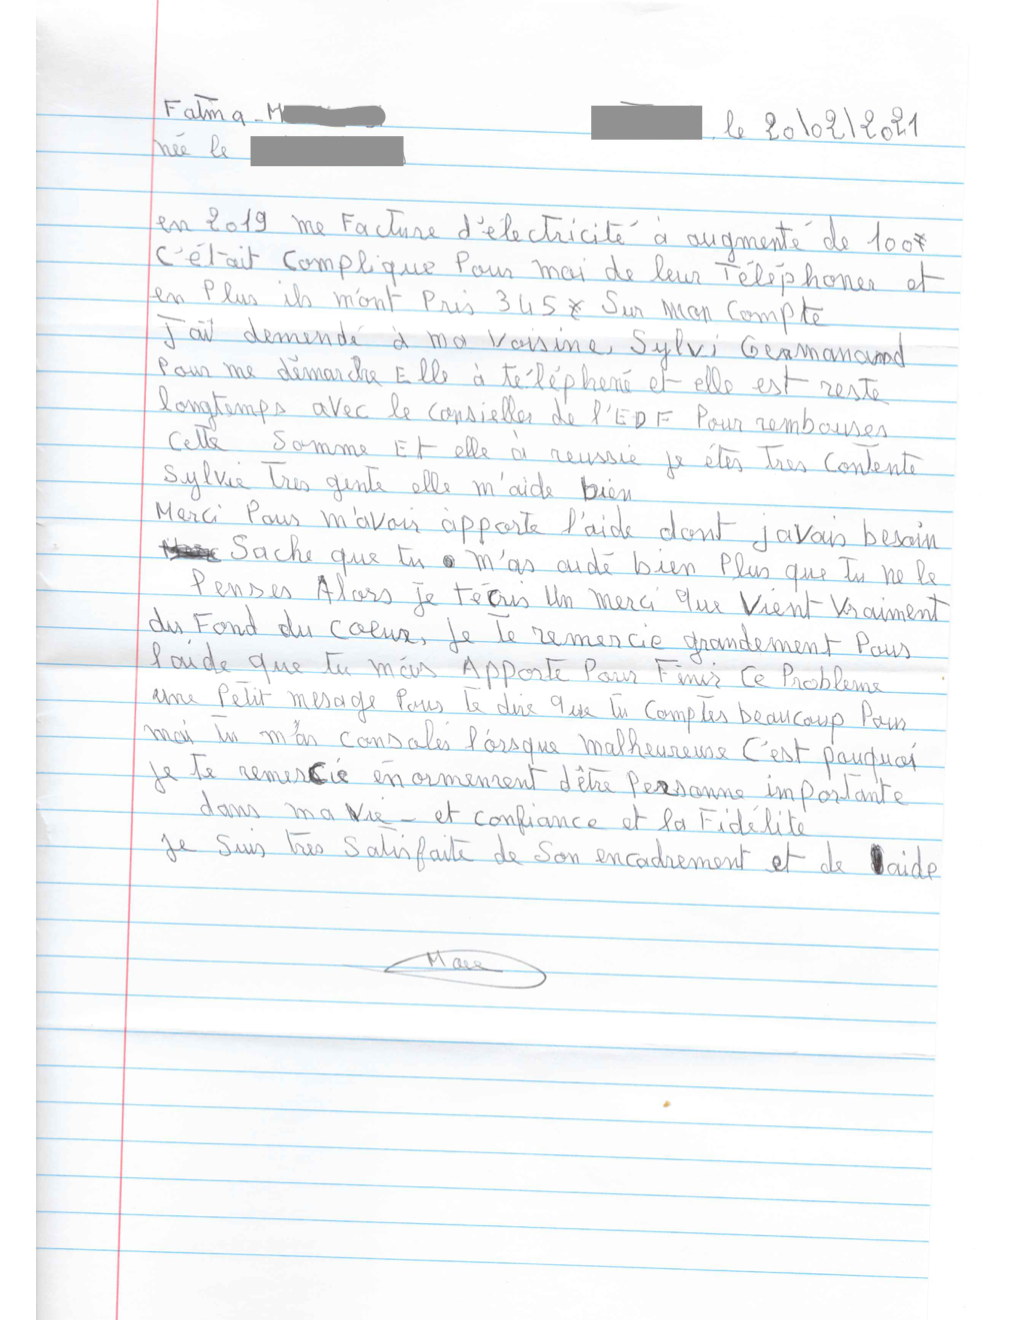 Fatma - M
, le 20/02/2021
née le
en 2019 me Facture d'électricité à augmenté de 100€
C'était Complique Pour moi de leur Téléphoner et
en Plus ils m'ont Pris 345€ Sur Mon Compte
J'ai demendé à ma Voisine, Sylvi
Pour me démarche Elle à téléphené et elle est reste
longtemps avec le Consielles de l'EDF Pour rembouses
Cette Somme Et elle à reussie je étès Tres Contente
Sylvie Tres gente elle m'aide bien
Merci Pour m'avoir apporte l'aide dont javais besoin
Sache que tu m'as aidé bien Plus que Tu ne le
Penses Alors je técris Un merci que Vient Vraiment
du Fond du Coeur, Je Te remercie grandement Pour
l'aide que tu m'ais Apporte Pour Finir Ce Probleme
une Petit mesage Pour Te dire que tu Comptes beaucoup Pour
moi Tu m'as Consolés l'orsque malheureuse C'est pourquoi
je Te remercie énormement d'être Personne importante
dans ma Vie - et Confiance et la Fidélité
Je Suis Très Satisfaite de Son encadrement et de l'aide